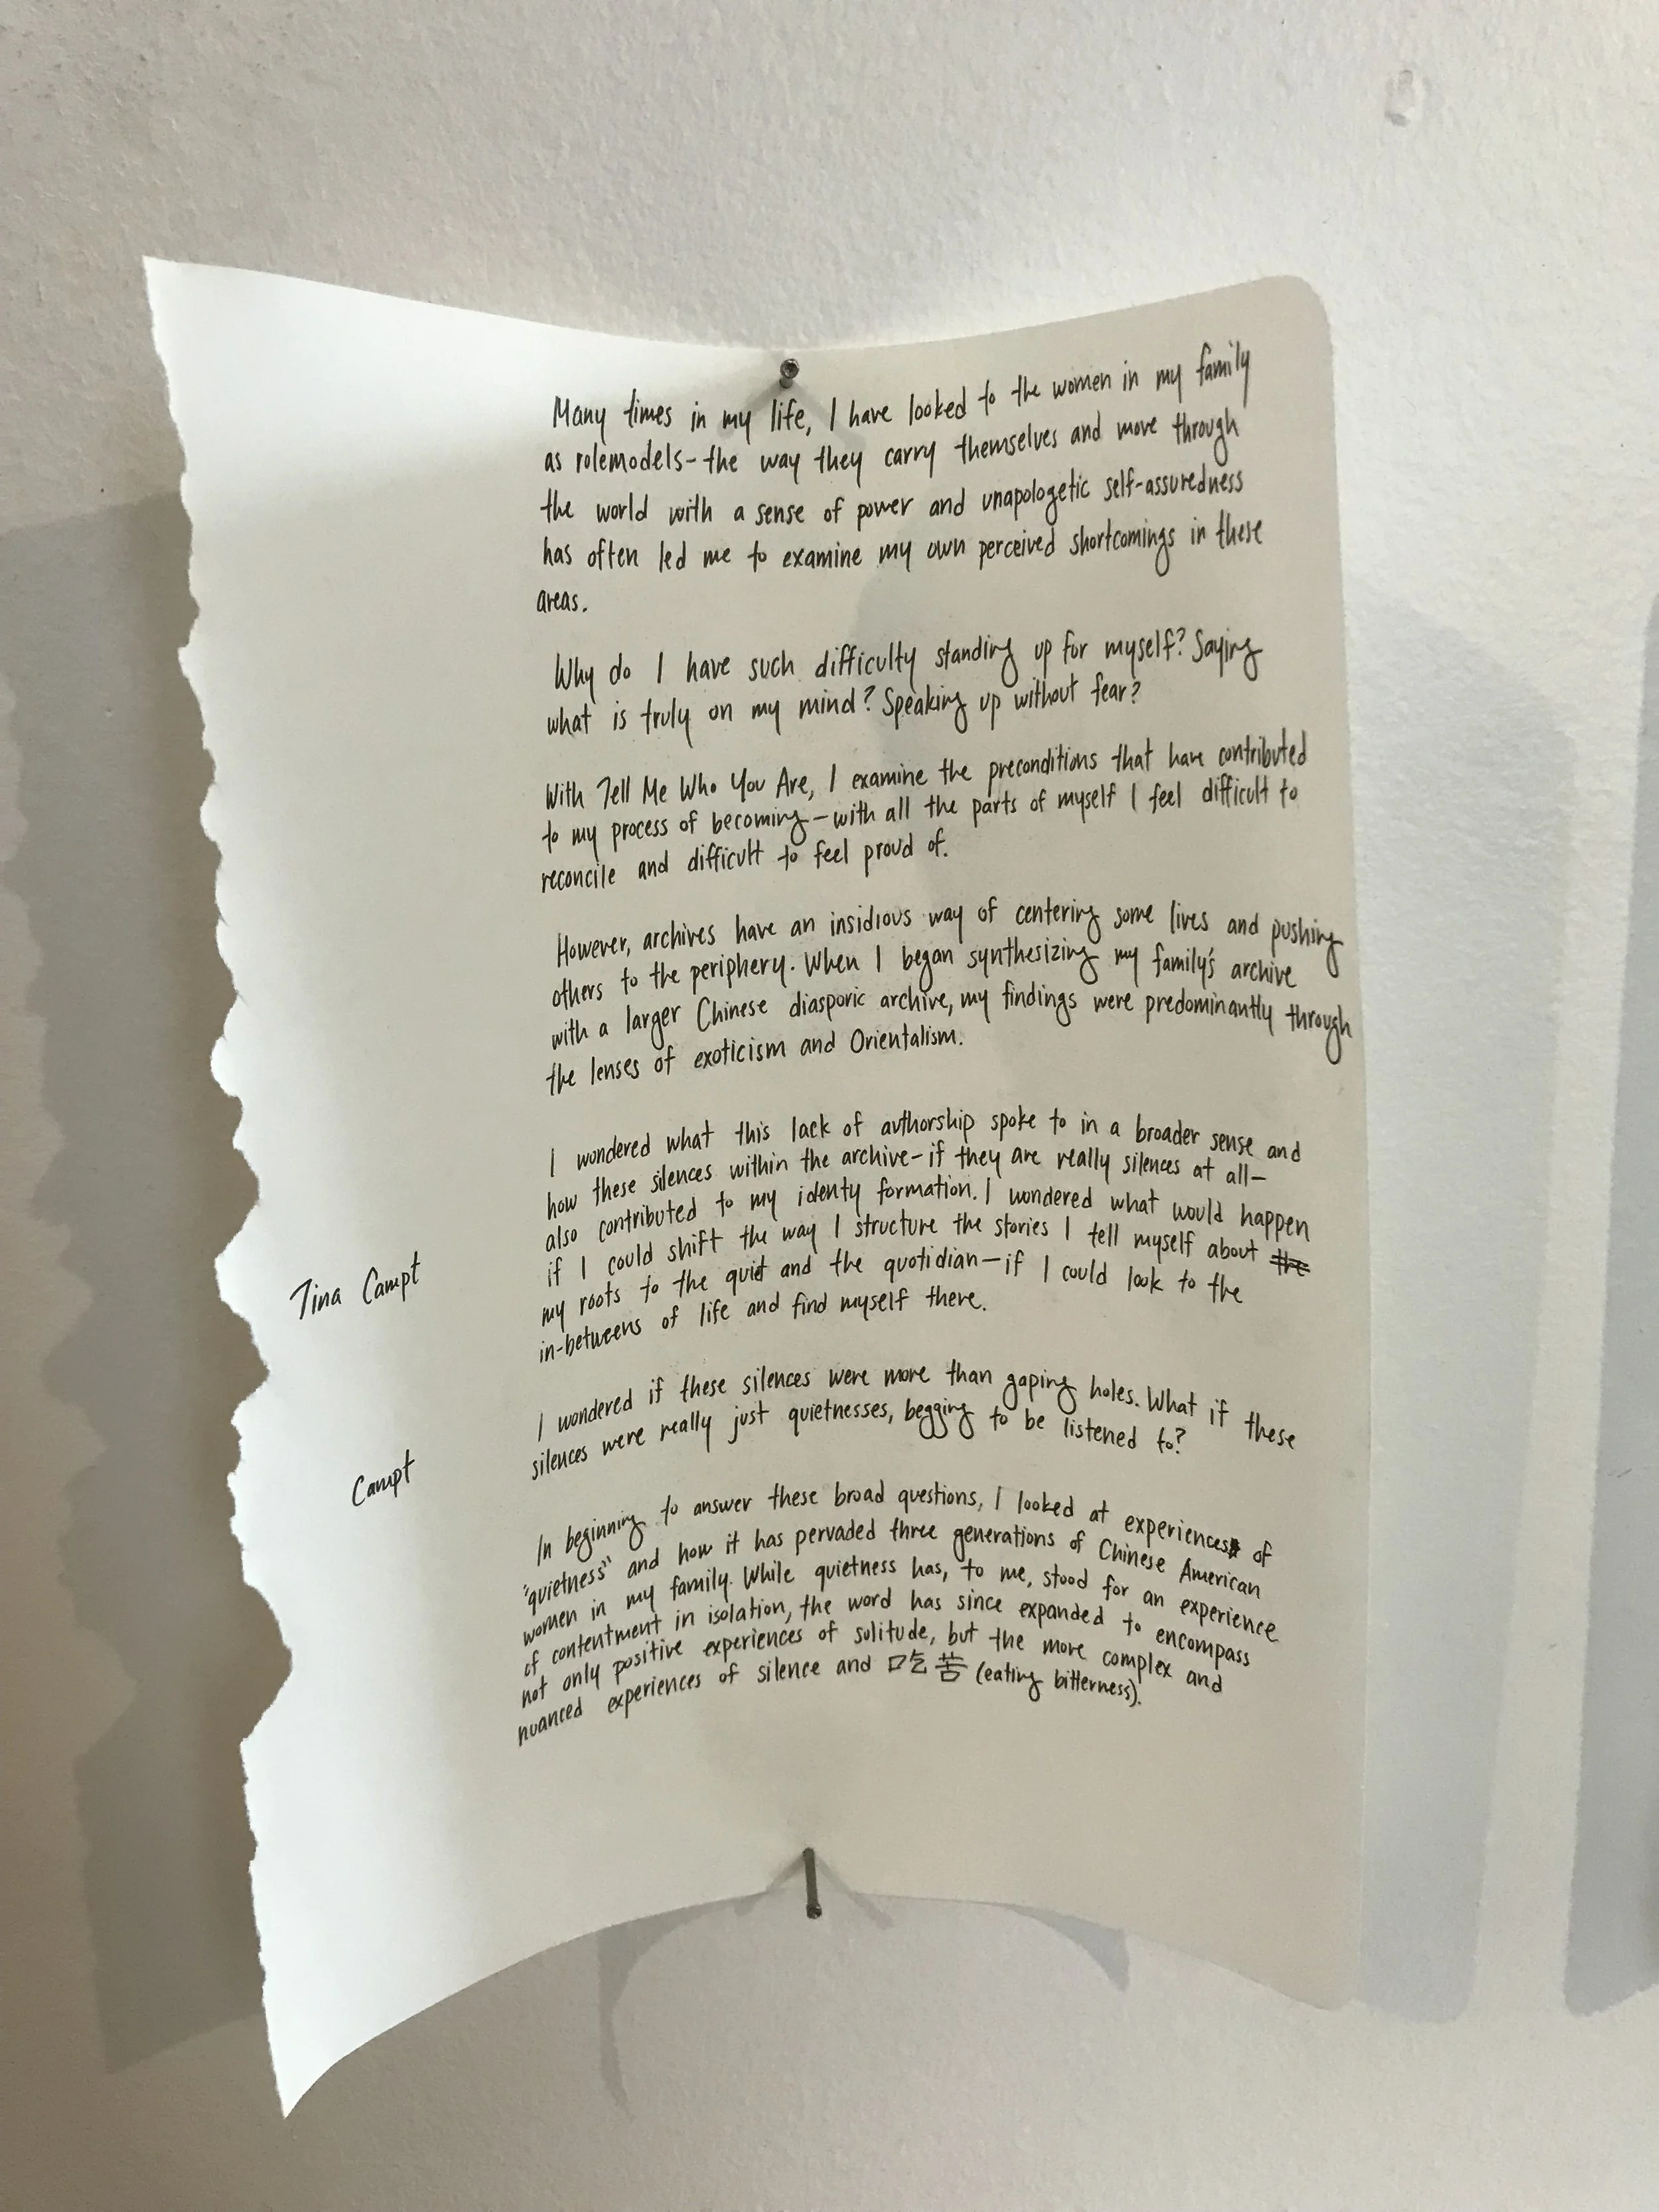 Many times in my life, I have looked to the women in my family
as rolemodels-the way they carry themselves and move through
the world with a sense of power and unapologetic self-assuredness
has often led me to examine my own perceived shortcomings in these
areas.
Why do I have such difficulty standing up for myself? Saying
what is truly on my mind? Speaking up without fear?
With Tell Me Who You Are, I examine the preconditions that have contributed
to my process of becoming—with all the parts of myself I feel difficult to
reconcile and difficult to feel proud of.
However, archives have an insidious way of centering some lives and pushing
others to the periphery. When I began synthesizing my family's archive
with a larger Chinese diasporic archive, my findings were predominantly through
the lenses of exoticism and Orientalism.
I wondered what this lack of authorship spoke to in a broader sense and
how these silences within the archive—if they are really silences at all—
also contributed to my identy formation. I wondered what would happen
if I could shift the way I structure the stories I tell myself about the
Tina Campt
my roots to the quiet and the quotidian—if I could look to the
in-betweens of life and find myself there.
I wondered if these silences were more than gaping holes. What if these
silences were really just quietnesses, begging to be listened to?
Campt
In beginning to answer these broad questions, I looked at experiences of
"quietness" and how it has pervaded three generations of Chinese American
women in my family. While quietness has, to me, stood for an experience
of contentment in isolation, the word has since expanded to encompass
not only positive experiences of solitude, but the more complex and
nuanced experiences of silence and 吃苦 (eating bitterness).